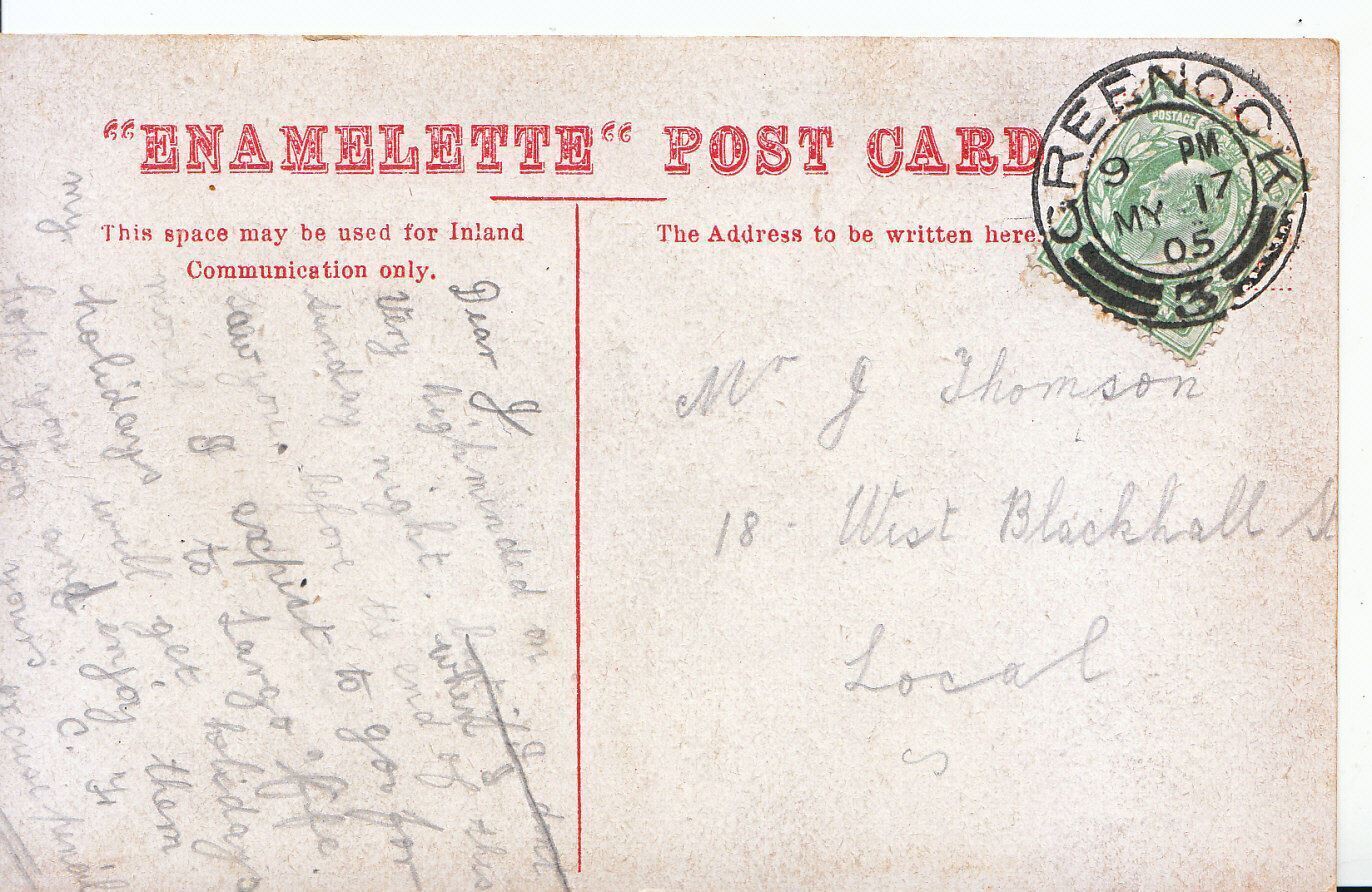 "ENAMELETTE" POST CARD
This space may be used for Inland
Communication only.
The Address to be written here.
POSTAGE
GREENOCK
9 PM
MY 17
05
3
Dear J.
Very high minded on
sunday night. when I
saw you. before the end of this
I expect to go for
my holidays to Largo Fife
holidays will get them
hope you and enjoy
too yours excuse
Mr J Thomson
18 - West Blackhall St
Local